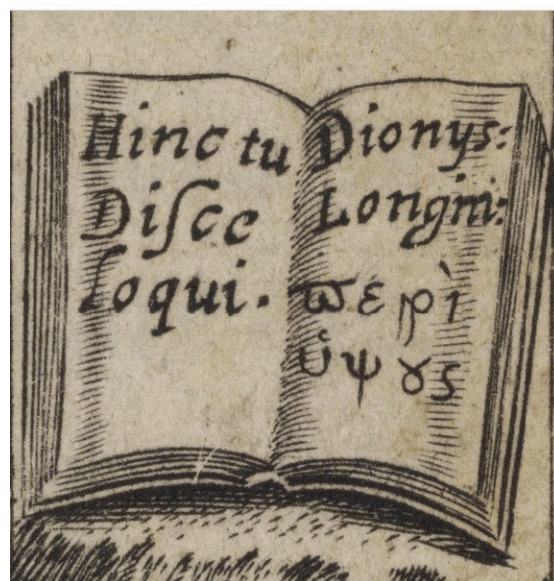 Hinc tu
Diſce
loqui.
Dionys:
Longin:
ϖερὶ
ὑψȣς